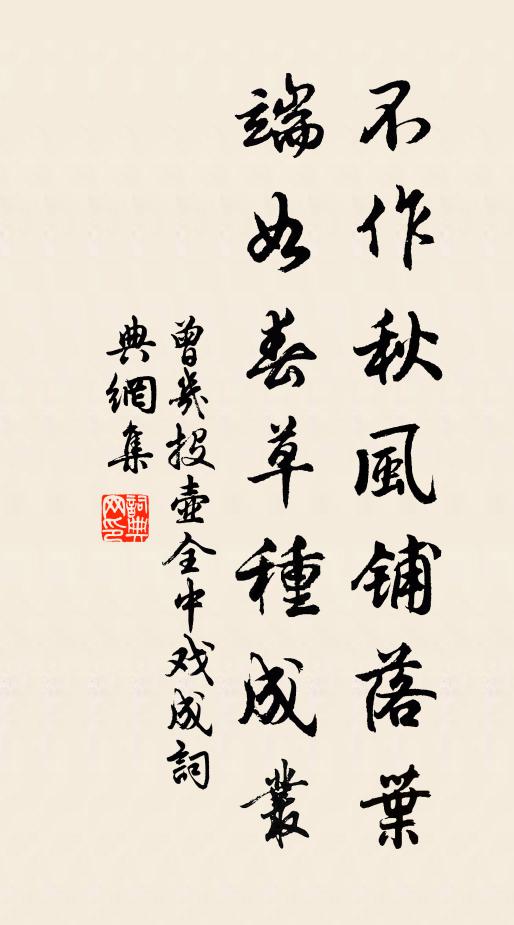 不作秋風铺落葉
端如春草種成叢
曾幾投壺全中戏成詞
典網集
詞典
网印